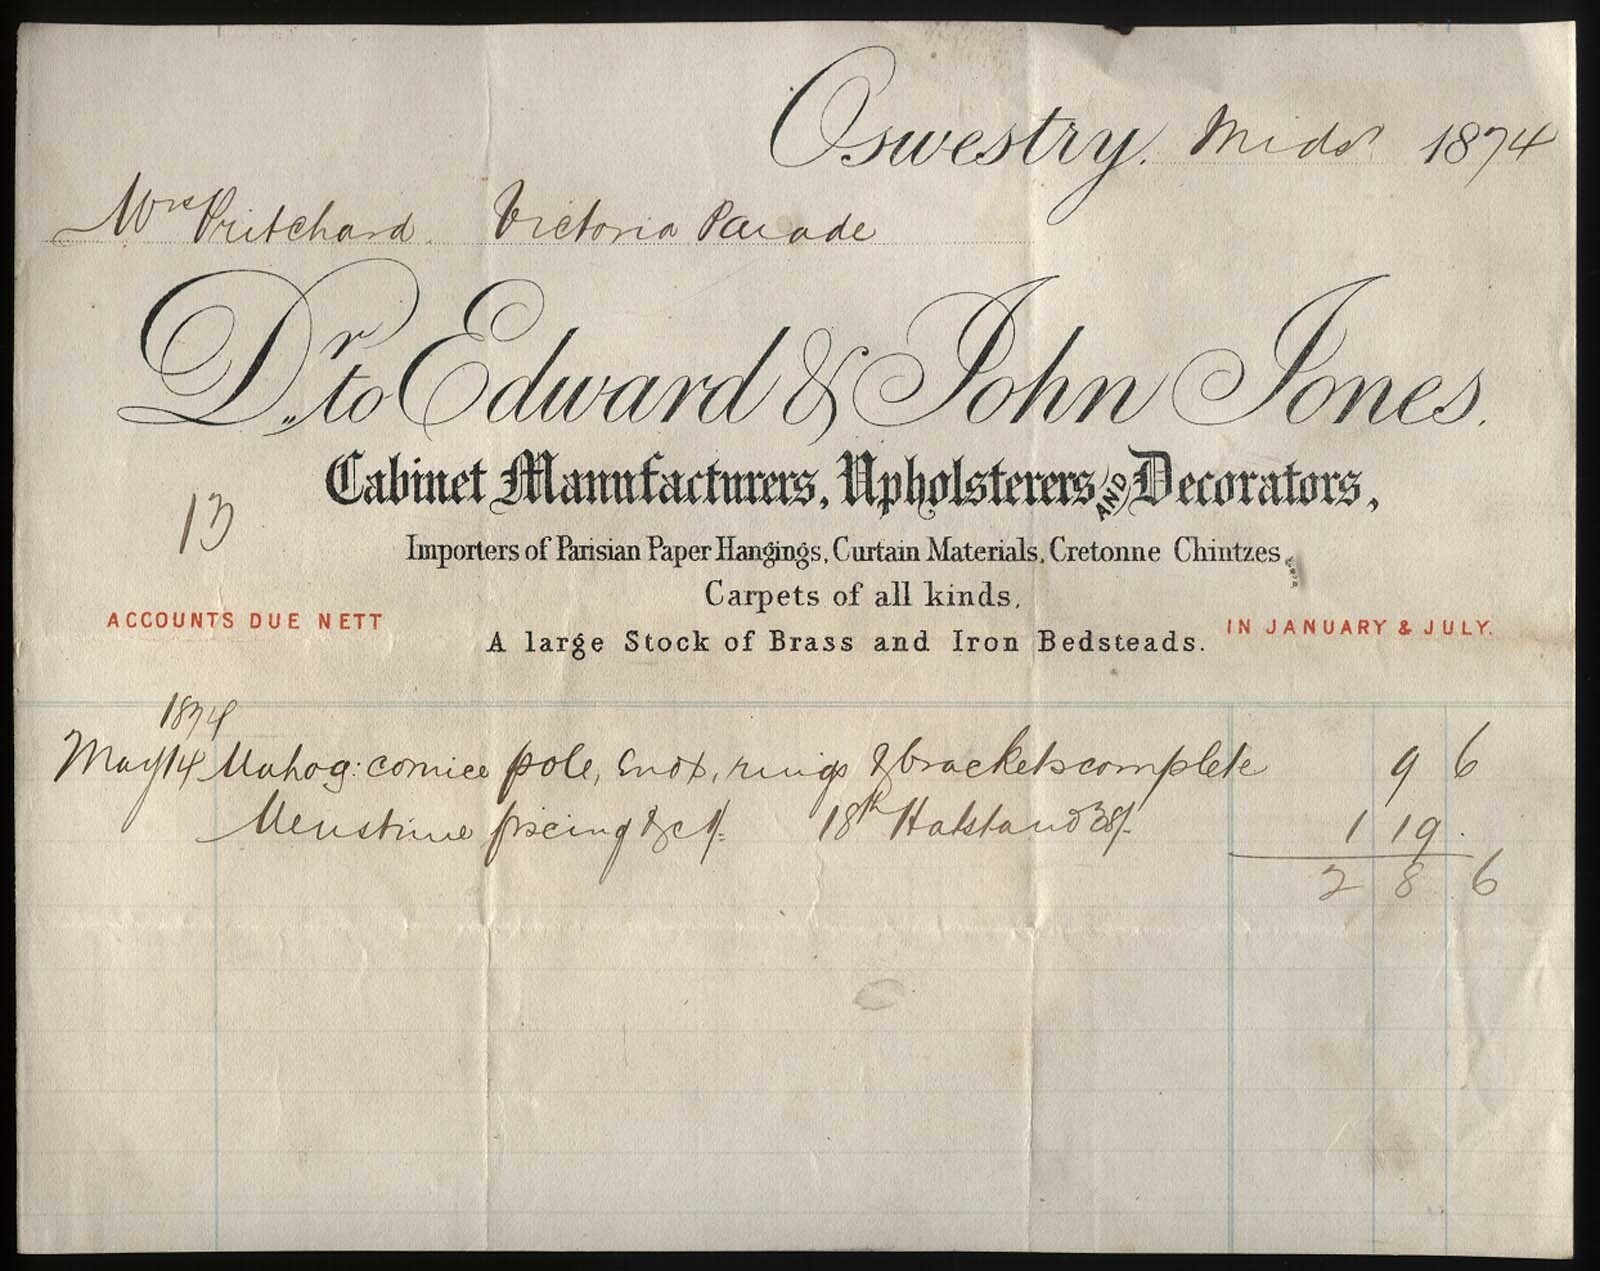 Oswestry. Midsr 1874
Mrs Pritchard. Victoria Parade
Dr. to Edward & John Jones.
Cabinet Manufacturers, Upholsterers AND Decorators,
13
Importers of Parisian Paper Hangings, Curtain Materials, Cretonne Chintzes
Carpets of all kinds,
ACCOUNTS DUE NETT
IN JANUARY & JULY.
A large Stock of Brass and Iron Bedsteads.
1874
May 14 Mahog: cornice pole, ends, rings & brackets complete 9 6
Menstime fixing &c 1/- 18th Hatstand 38/- 1 19 .
2 8 6